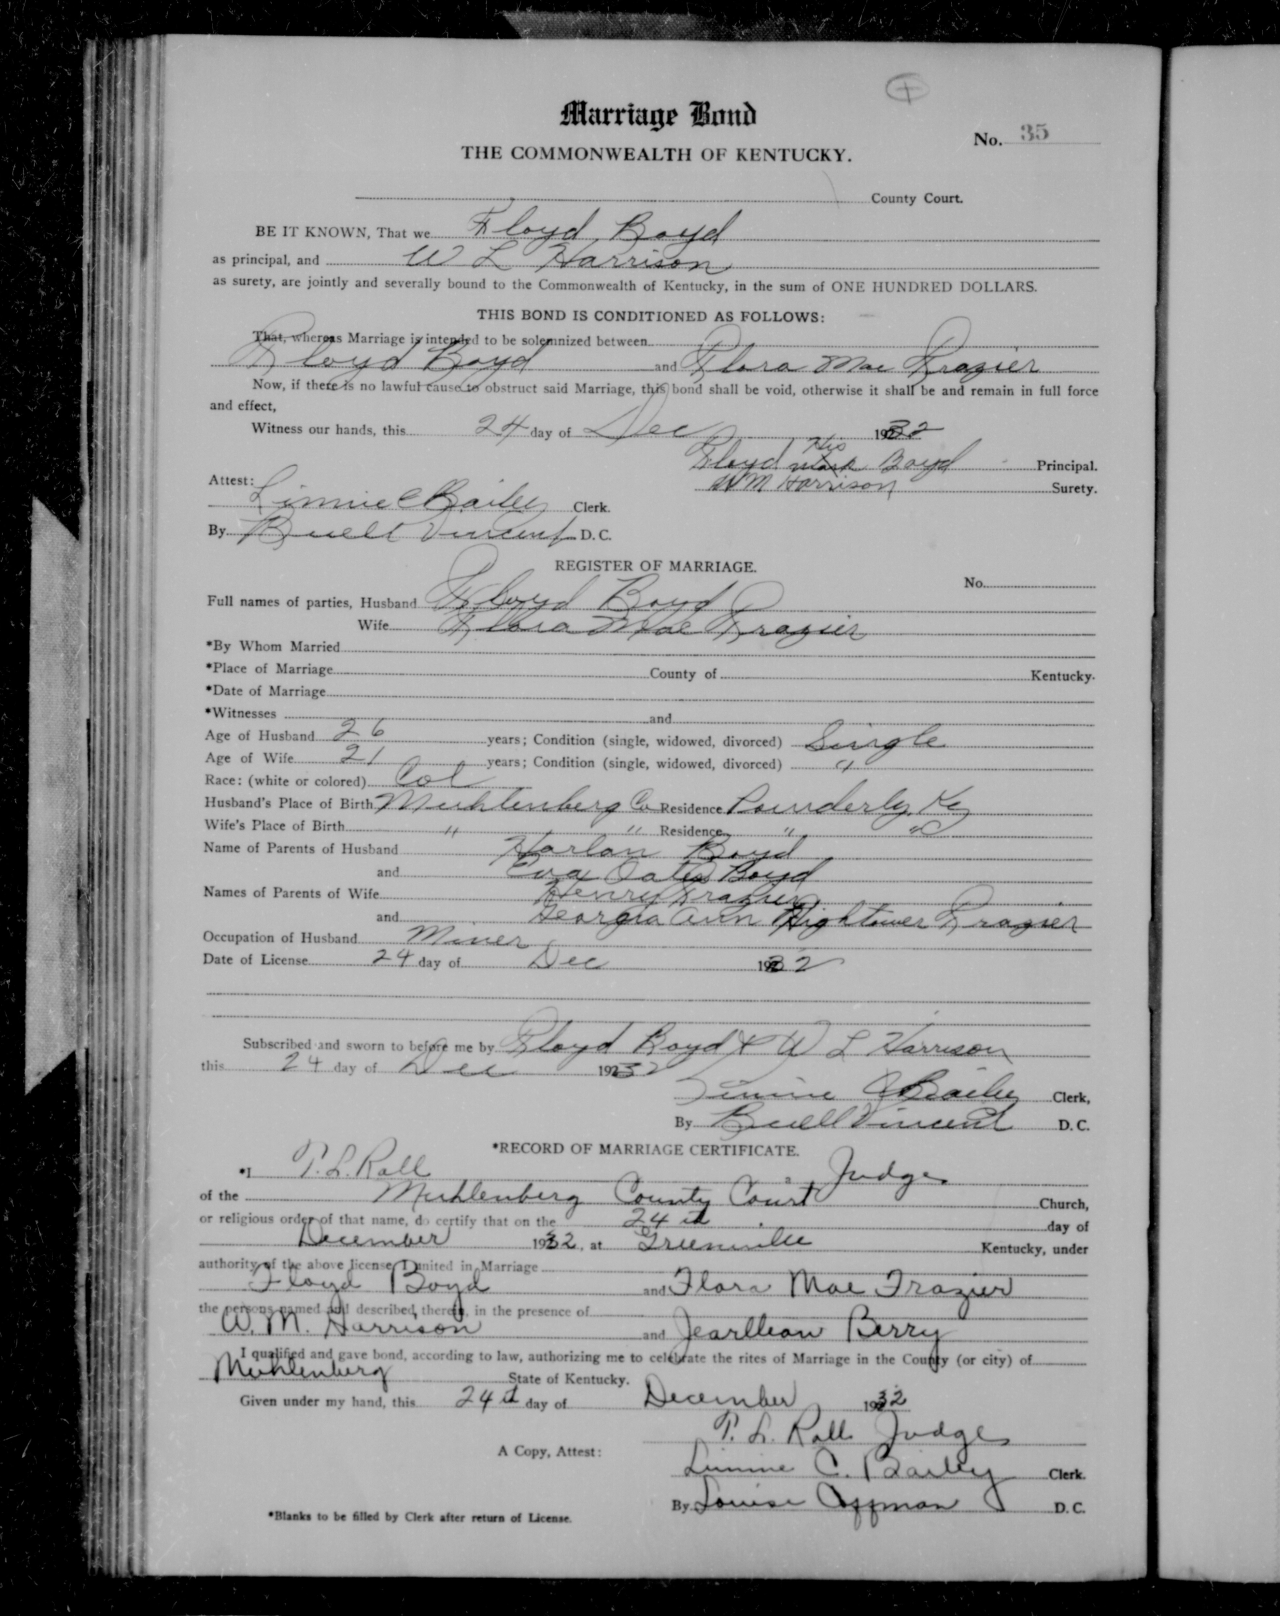 Marriage Bond
No. 35
THE COMMONWEALTH OF KENTUCKY.
County Court.
BE IT KNOWN, That we Floyd Boyd
as principal, and W L Harrison
as surety, are jointly and severally bound to the Commonwealth of Kentucky, in the sum of ONE HUNDRED DOLLARS.
THIS BOND IS CONDITIONED AS FOLLOWS:
That, whereas Marriage is intended to be solemnized between
Floyd Boyd and Flora Mae Frazier
Now, if there is no lawful cause to obstruct said Marriage, this bond shall be void, otherwise it shall be and remain in full force
and effect,
Witness our hands, this 24 day of Dec 1932
Floyd His mark Boyd Principal.
Attest: WM Harrison Surety.
Linnie C Bailey Clerk.
By Buell Vincent D. C.
REGISTER OF MARRIAGE.
No.
Full names of parties, Husband Floyd Boyd
Wife Flora Mae Frazier
*By Whom Married
*Place of Marriage County of Kentucky.
*Date of Marriage
*Witnesses and
Age of Husband 26 years; Condition (single, widowed, divorced) Single
Age of Wife 21 years; Condition (single, widowed, divorced) "
Race: (white or colored) Col
Husband's Place of Birth Muhlenberg Co Residence Powderly Ky
Wife's Place of Birth " " Residence " "
Name of Parents of Husband Harlan Boyd
and Eva Oates Boyd
Names of Parents of Wife Henry Frazier
and Georgia Ann Hightower Frazier
Occupation of Husband Miner
Date of License 24 day of Dec 1932
Subscribed and sworn to before me by Floyd Boyd & W L Harrison
this 24 day of Dec 1932
Linnie C Bailey Clerk,
By Buell Vincent D. C.
*RECORD OF MARRIAGE CERTIFICATE.
*I T. L. Roll Judge
of the Muhlenberg County Court Church,
or religious order of that name, do certify that on the 24th day of
December 1932, at Greenville Kentucky, under
authority of the above license I united in Marriage
Floyd Boyd and Flora Mae Frazier
the persons named and described therein, in the presence of
W. M. Harrison and Jearllean Berry
I qualified and gave bond, according to law, authorizing me to celebrate the rites of Marriage in the County (or city) of
Muhlenberg State of Kentucky.
Given under my hand, this 24th day of December 1932
T. L. Roll Judge
A Copy, Attest: Linnie C. Bailey Clerk.
By Louise Coffman D. C.
*Blanks to be filled by Clerk after return of License.